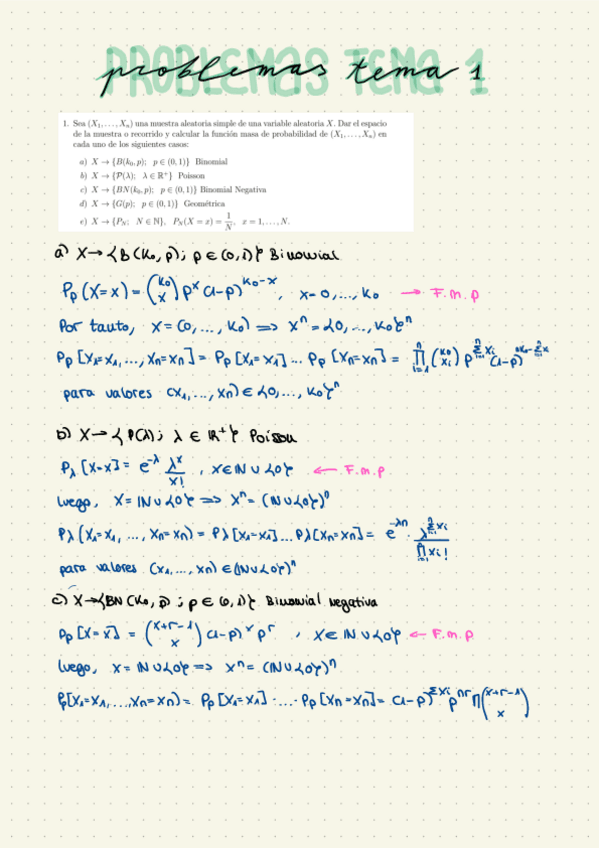 PROBLEMAS TEMA 1
problemas tema 1
1. Sea (X₁, . . . , Xₙ) una muestra aleatoria simple de una variable aleatoria X. Dar el espacio
de la muestra o recorrido y calcular la función masa de probabilidad de (X₁, . . . , Xₙ) en
cada uno de los siguientes casos:
a) X → {B(k₀, p); p ∈ (0, 1)} Binomial
b) X → {P(λ); λ ∈ ℝ⁺} Poisson
c) X → {BN(k₀, p); p ∈ (0, 1)} Binomial Negativa
d) X → {G(p); p ∈ (0, 1)} Geométrica
e) X → {P_N; N ∈ ℕ}, P_N(X = x) = 1/N, x = 1, . . . , N.
a) X → {B(k₀, p); p ∈ (0, 1)} Binomial
Pp(X=x) = (k₀ x) pˣ (1-p)^(k₀-x), x=0,..., k₀ → F.m.p
Por tanto, X = {0, ..., k₀} ⟹ Xⁿ = {0, ..., k₀}ⁿ
Pp[X₁=x₁, ..., Xn=xn] = Pp[X₁=x₁] ... Pp[Xn=xn] = ∏ᵢ₌₁ⁿ (k₀ xᵢ) p^(∑ᵢ₌₁ⁿ xᵢ) (1-p)^(nk₀-∑ᵢ₌₁ⁿ xᵢ)
para valores (x₁, ..., xn) ∈ {0, ..., k₀}ⁿ
b) X → {P(λ); λ ∈ ℝ⁺} Poisson
Pλ[X=x] = e^(-λ) λˣ/x! , x∈ℕ∪{0} ← F.m.p
luego, X = ℕ∪{0} ⟹ Xⁿ = (ℕ∪{0})ⁿ
Pλ(X₁=x₁, ..., Xn=xn) = Pλ[X₁=x₁] ... Pλ[Xn=xn] = e^(-λn) · λ^(∑ᵢ₌₁ⁿ xᵢ) / ∏ᵢ₌₁ⁿ xᵢ!
para valores (x₁, ..., xn) ∈ (ℕ∪{0})ⁿ
c) X → {BN(k₀, p) ; p ∈ (0, 1)} Binomial negativa
Pp[X=x] = (x+r-1 x) (1-p)ˣ pʳ , x∈ℕ∪{0} ← F.m.p
luego, X = ℕ∪{0} ⟹ Xⁿ = (ℕ∪{0})ⁿ
Pp[X₁=x₁, ..., Xn=xn) = Pp[X₁=x₁] · ... · Pp[Xn=xn] = (1-p)^(∑xᵢ) p^(nr) ∏ (x+r-1 x)